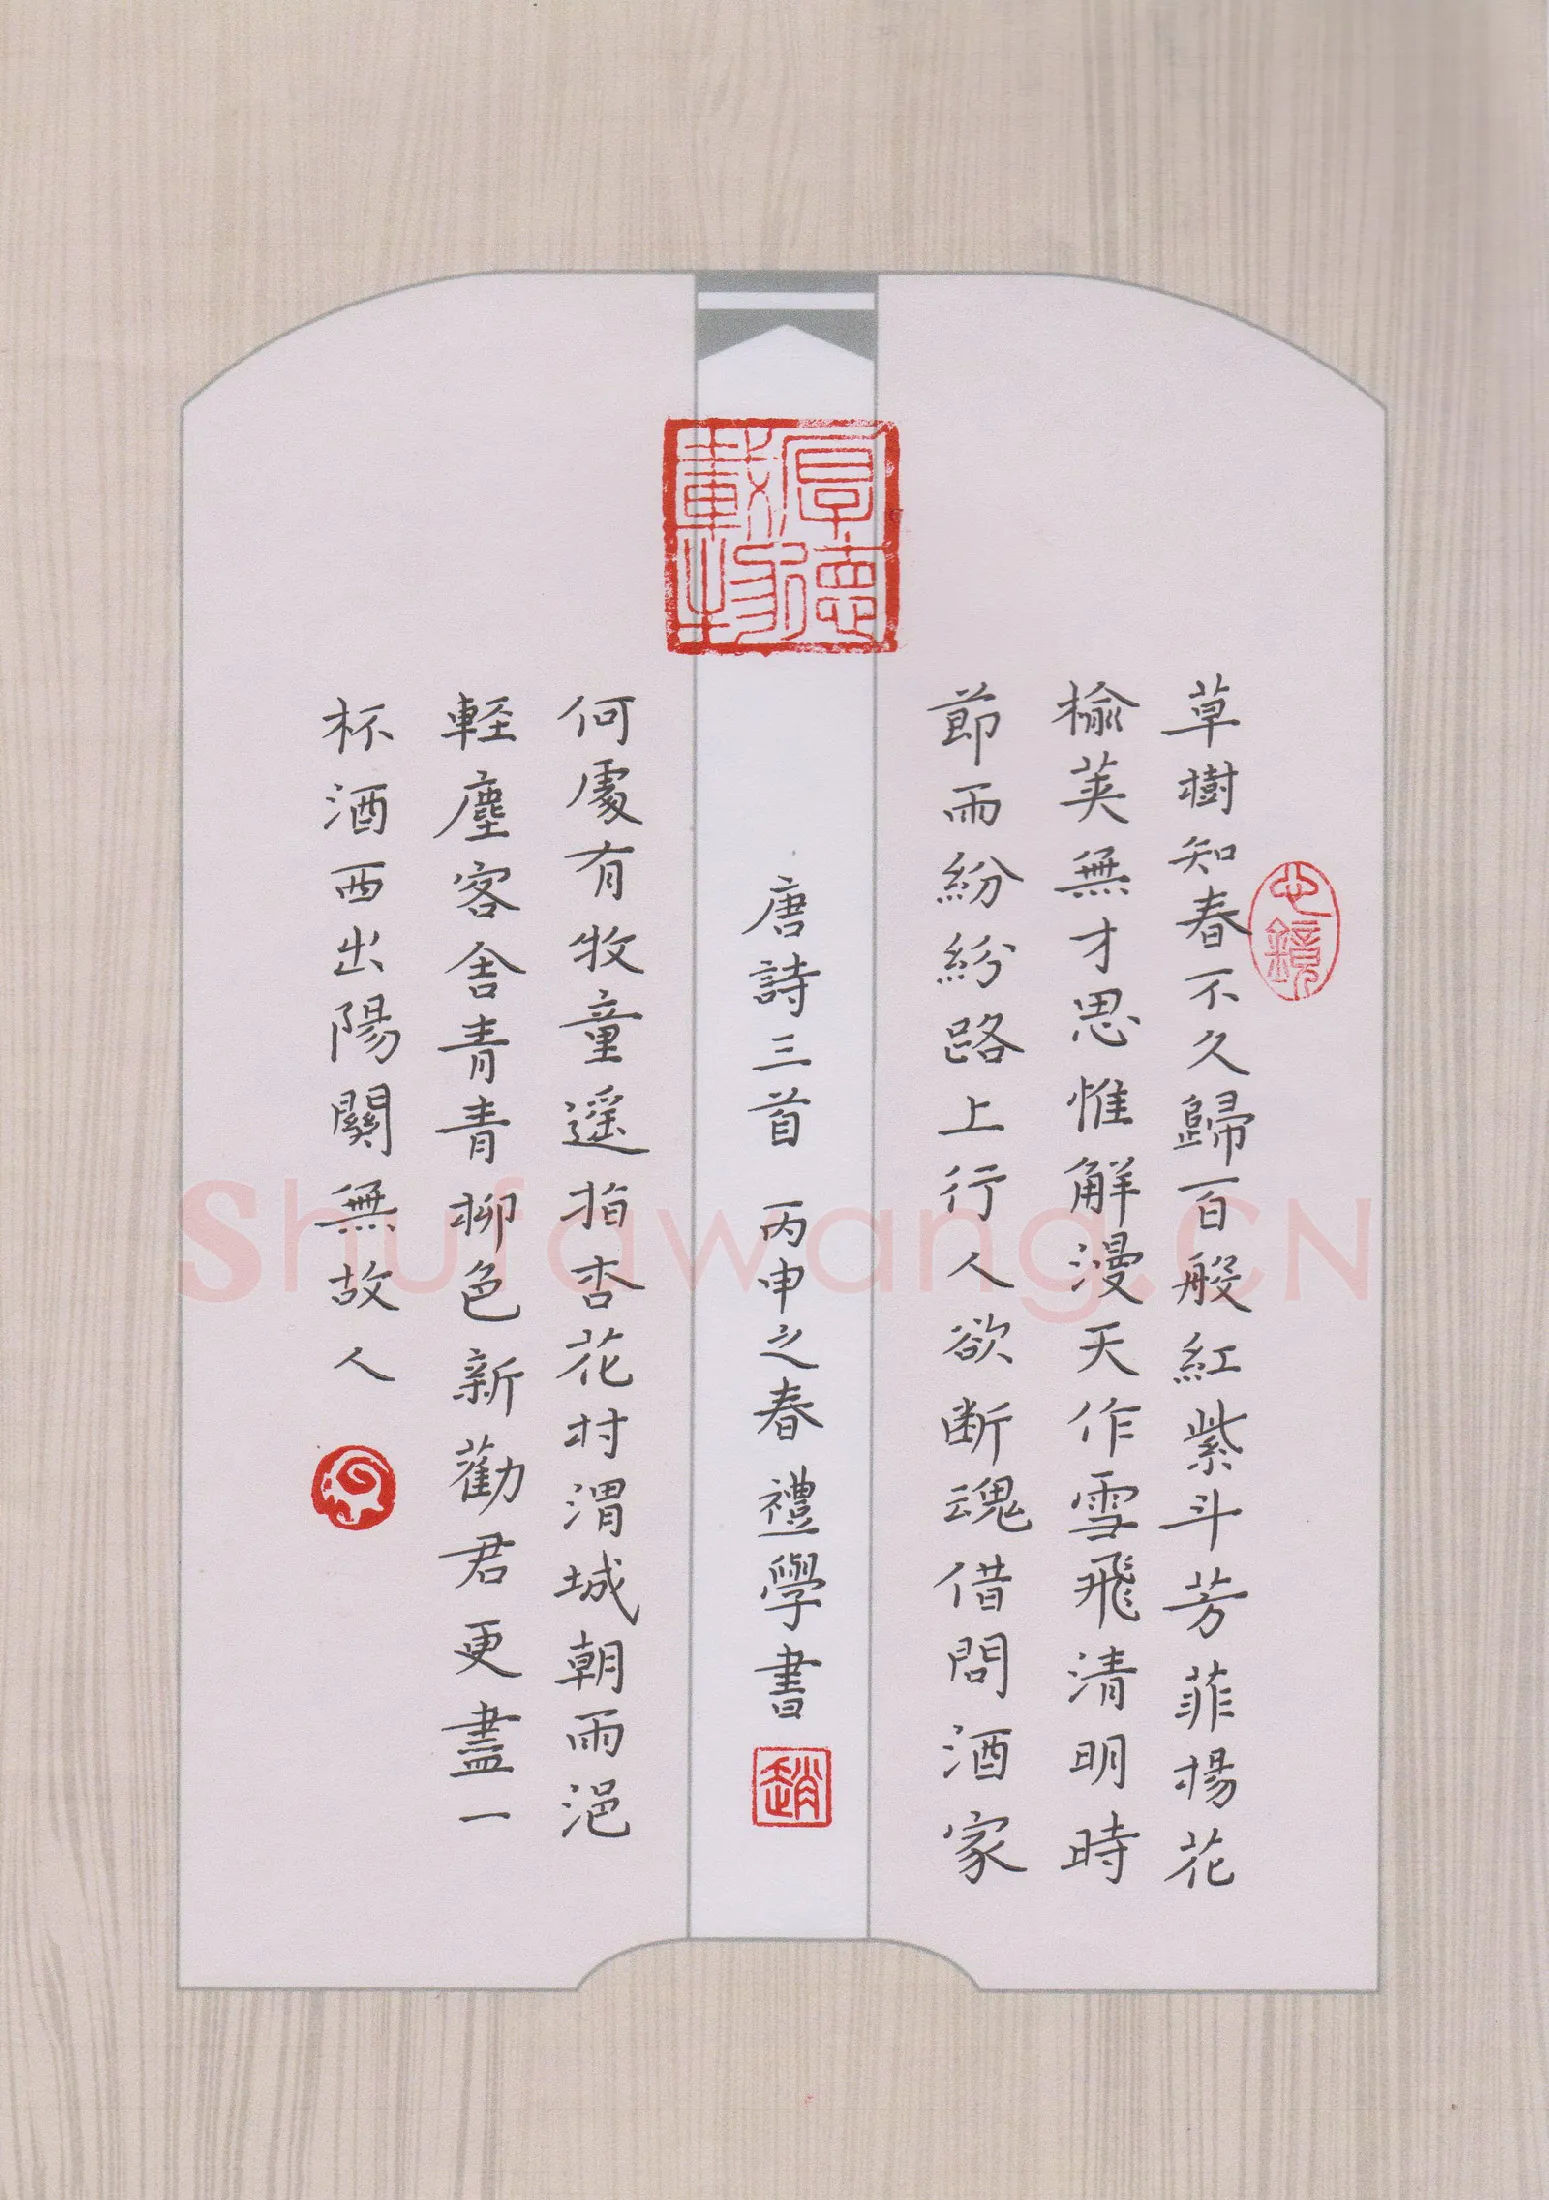 草樹知春不久歸百般紅紫斗芳菲楊花
榆莢無才思惟解漫天作雪飛清明時
節雨紛紛路上行人欲断魂借問酒家
厚德載物
唐詩三首 丙申之春 禮學書
趙
何處有牧童遥指杏花村渭城朝雨浥
輕塵客舍青青柳色新勸君更盡一
杯酒西出陽關無故人
心鏡
Shufawang.CN